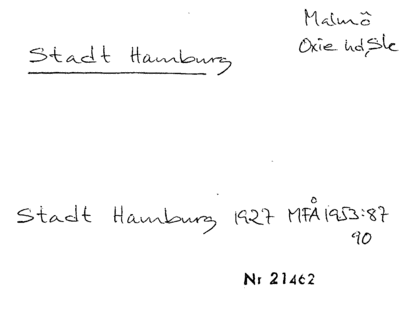 Malmö
Stadt Hamburg
Oxie hd, Sk
Stadt Hamburg 1927 MFÅ 1953:87
90
Nr 21462